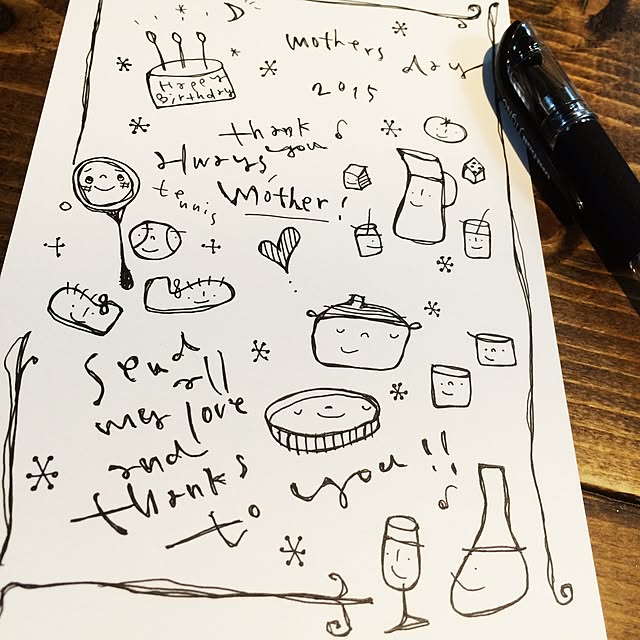 Happy
Birthday
mothers day
2015
thank you
always,
tennis
Mother!
Send
all
my love
and
thanks
to you!!